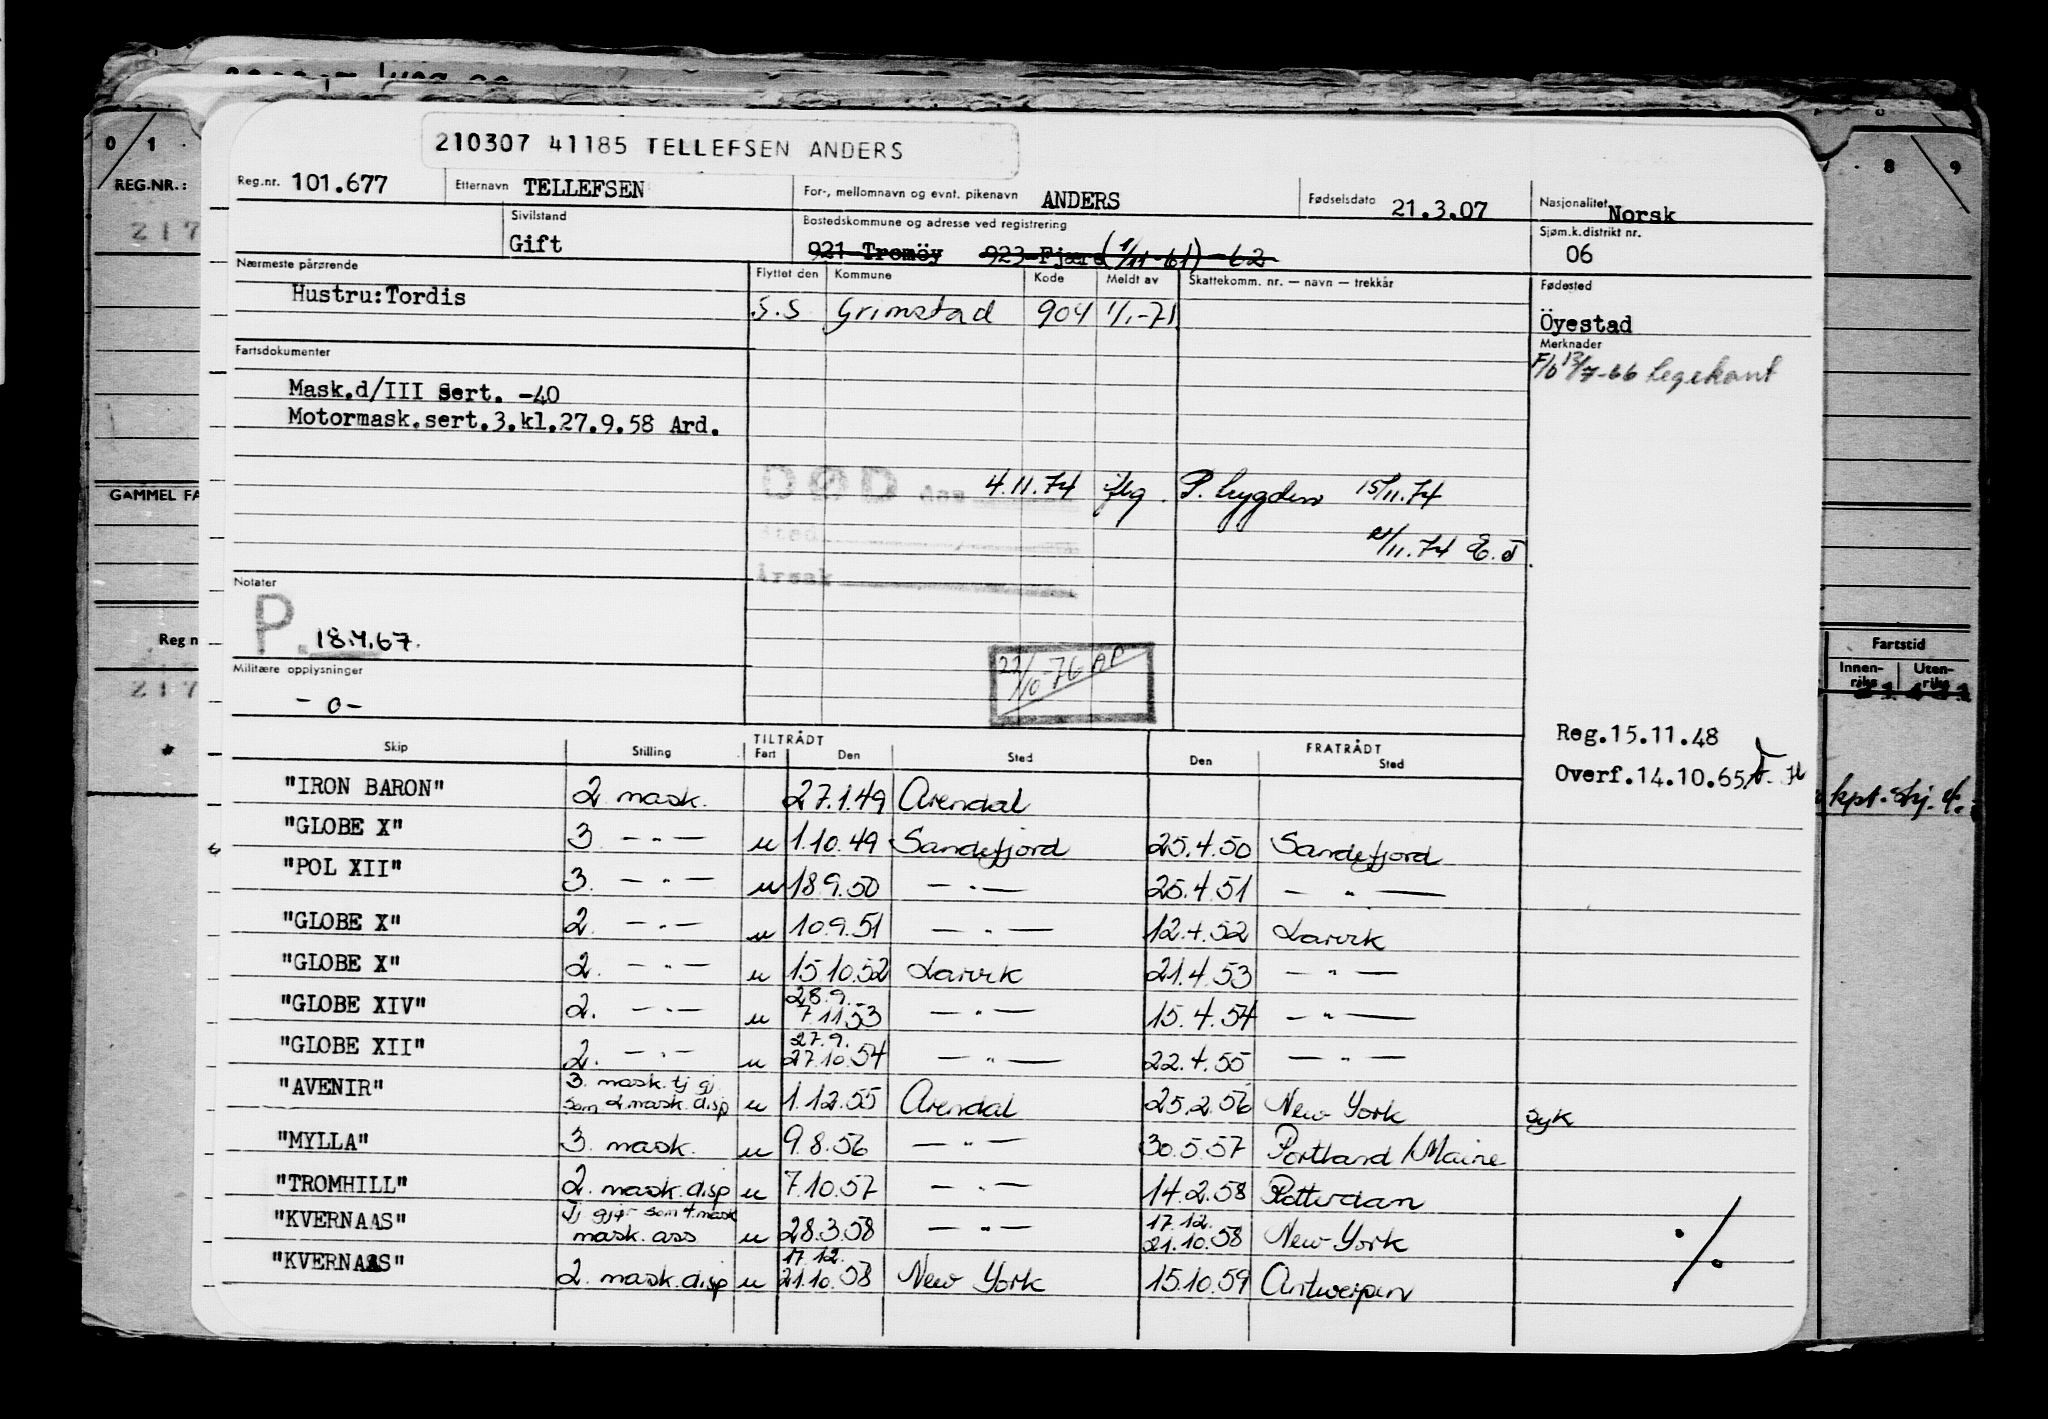 210307 41185 TELLEFSEN ANDERS
Reg.nr. 101.677 Etternavn TELLEFSEN For-, mellomnavn og evnt. pikenavn ANDERS Fødselsdato 21.3.07 Nasjonalitet Norsk
Sivilstand Gift Bostedskommune og adresse ved registrering 921 Tromöy 923 Fjære (1/11-61) -62 Sjøm.k.distrikt nr. 06
Nærmeste pårørende Flyttet den Kommune Kode Meldt av Skattekomm. nr. — navn — trekkår Fødested
Hustru:Tordis S.S Grimstad 904 1/1-71 Öyestad
Fartsdokumenter Merknader
F/b 13/7-66 Legekont
Mask.d/III Sert. -40
Motormask.sert.3.kl.27.9.58 Ard.
DØD den 4.11.74 flg. P. bygden 15/11.74
Sted 21/11.74 E.J
Årsak
Notater
P. 18.4.67.
22/10-76 AP
Militære opplysninger
- o -
Reg.15.11.48
Overf.14.10.65
Skip Stilling TILTRÅDT Fart Den Sted FRATRÅDT Den Sted
"IRON BARON" 2 mask. 27.1.49 Arendal
"GLOBE X" 3 — " — u 1.10.49 Sandefjord 25.4.50 Sandefjord
"POL XII" 3. — " — u 18.9.50 — " — 25.4.51 — " —
"GLOBE X" 2. — " — u 10.9.51 — " — 12.4.52 Larvik
"GLOBE X" 2. — " — u 15.10.52 Larvik 21.4.53 — " —
"GLOBE XIV" 2. — " — u 28.9. 7.11.53 — " — 15.4.54 — " —
"GLOBE XII" 2. — " — u 27.9. 27.10.54 — " — 22.4.55 — " —
"AVENIR" 3. mask. tj gj. som 2.mask.disp u 1.12.55 Arendal 25.2.56 New York syk
"MYLLA" 3. mask. u 9.8.56 — " — 30.5.57 Portland/Maine
"TROMHILL" 2. mask.disp u 7.10.57 — " — 14.2.58 Rotterdam
"KVERNAAS" Tj gjør som 4.mask mask. ass u 28.3.58 — " — 17.12. 21.10.58 New York
"KVERNAAS" 2. mask.disp u 17.12. 21.10.58 New York 15.10.59 Antwerpen
./.
0 1
REG.NR.:
217
GAMMEL FA
Reg n
217
*
8 9
Fartstid
Innen-riks Uten-riks